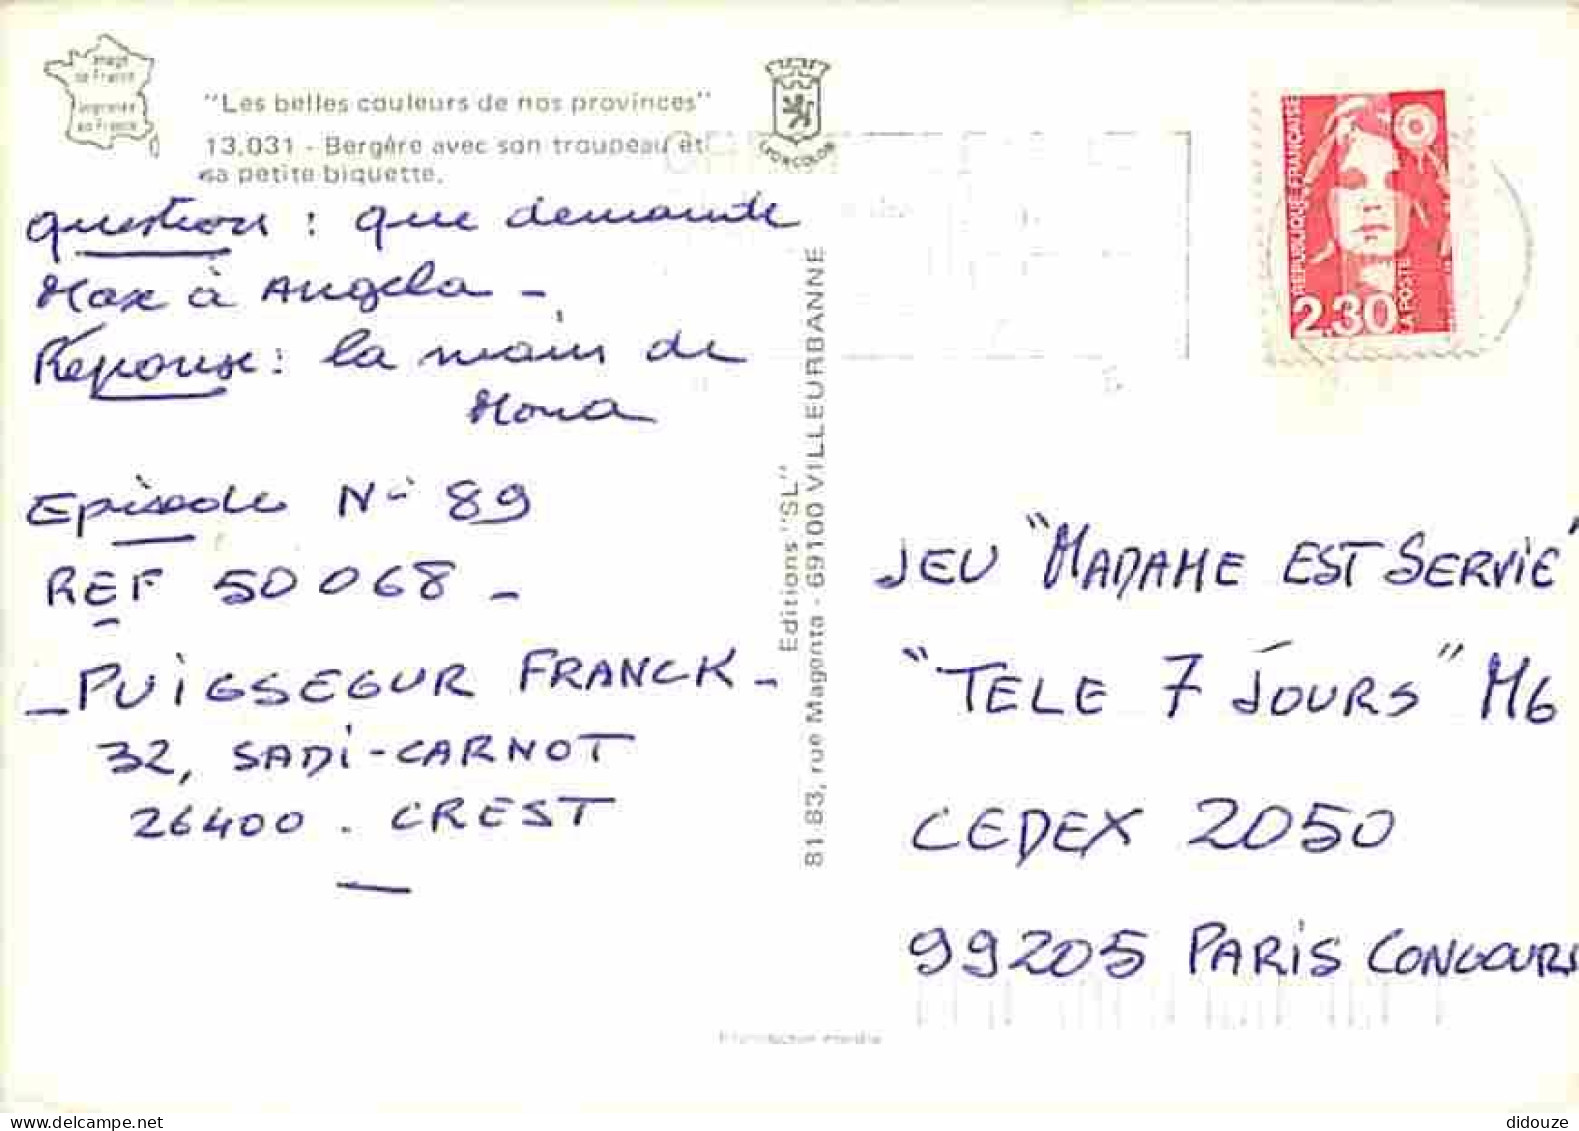 Image
de France
imprimée
en France
"Les belles couleurs de nos provinces"
13.031 - Bergère avec son troupeau et
sa petite biquette.
LYONCOLOR
question : que demande
Max à Angela -
Réponse : la main de
Mona
Episode N° 89
REF 50068 -
- PUIGSEGUR FRANCK -
32, SADI-CARNOT
26400 . CREST
Editions "SL"
81-83, rue Magenta - 69100 VILLEURBANNE
REPUBLIQUE FRANÇAISE
2,30
LA POSTE
JEU "MADAME EST SERVIE"
"TELE 7 JOURS" M6
CEDEX 2050
99205 PARIS CONCOURS
Reproduction interdite
didouze